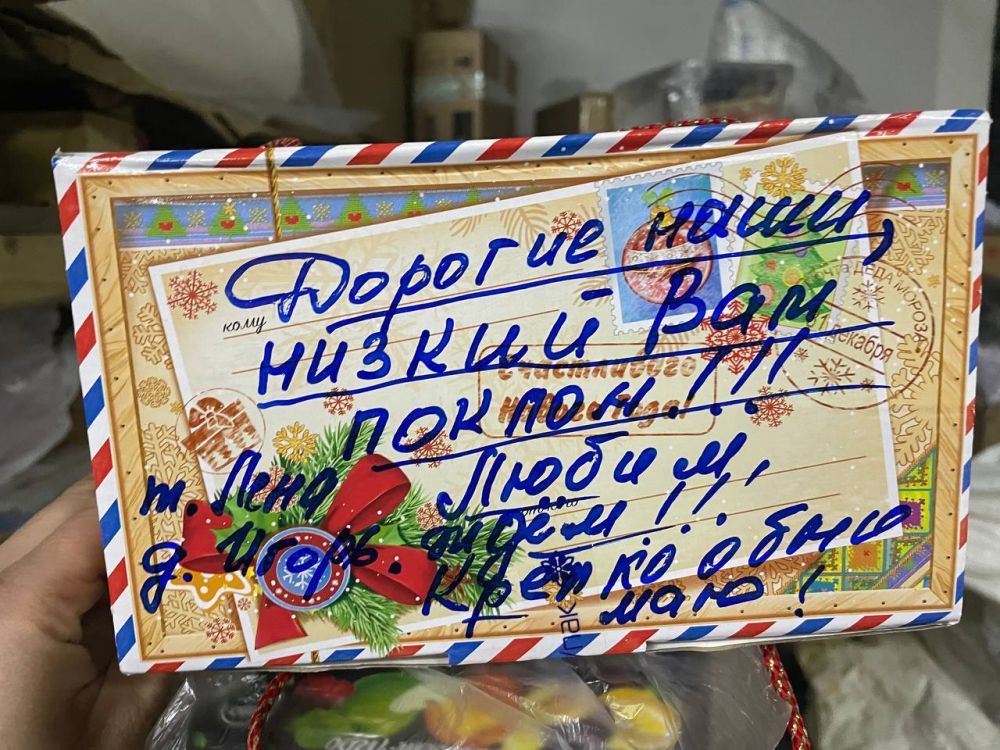 Дорогие наши,
кому
низкий Вам
Почта Деда Мороза
декабря
Счастливого
Нового года!
поклон!!!
Любим,
т. Лена
ждем!!!
д. Игорь.
Крепко обни
маю!